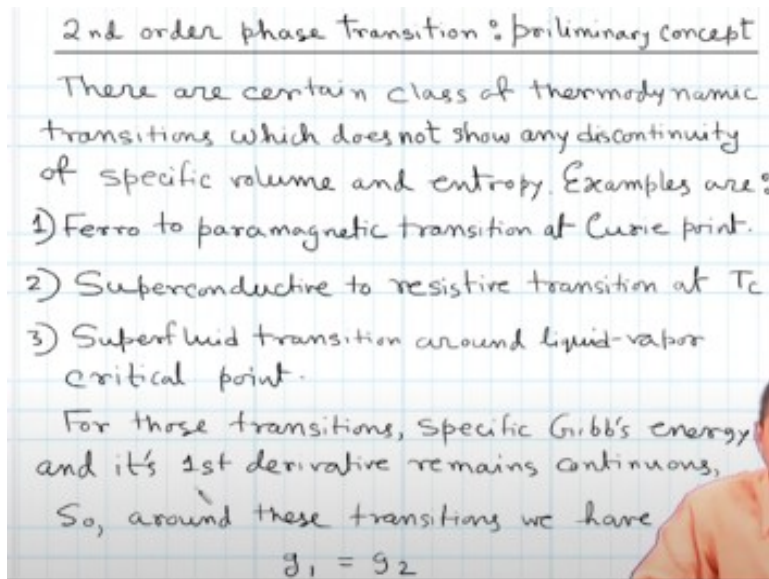 2nd order phase transition : priliminary concept
There are certain class of thermodynamic
transitions which does not show any discontinuity
of specific volume and entropy. Examples are:
1) Ferro to paramagnetic transition at Curie point.
2) Superconductive to resistive transition at Tc
3) Superfluid transition around liquid-vapor
critical point.
For those transitions, specific Gibb's energy
and it's 1st derivative remains continuous,
So, around these transitions we have
g₁ = g₂